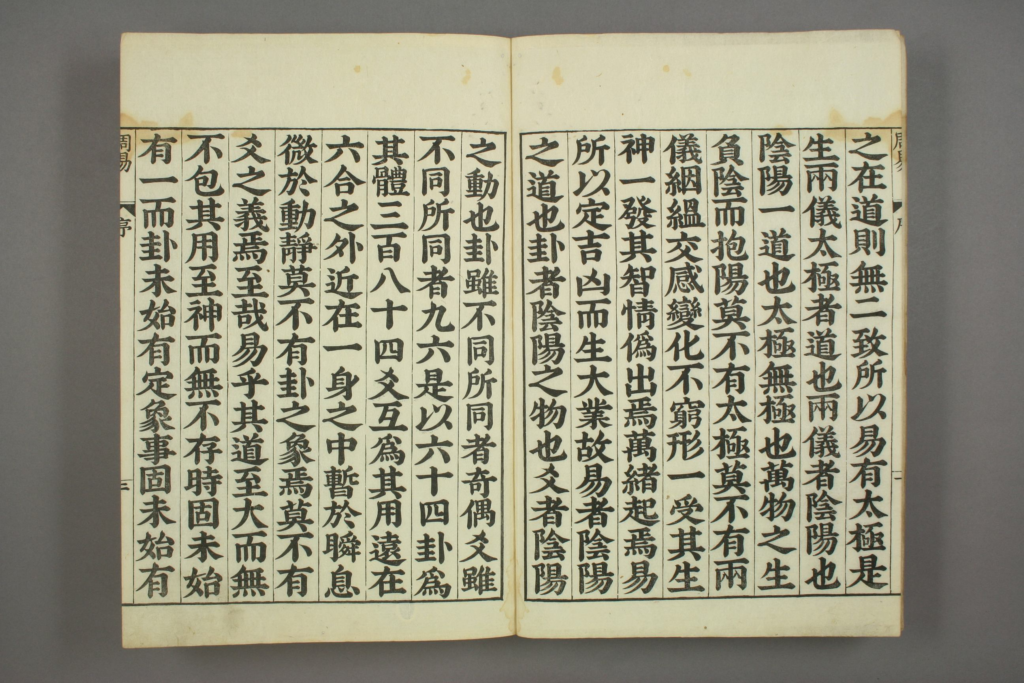 之在道則無二致所以易有太極是
生兩儀太極者道也兩儀者陰陽也
陰陽一道也太極無極也萬物之生
負陰而抱陽莫不有太極莫不有兩
儀絪縕交感變化不窮形一受其生
神一發其智情僞出焉萬緒起焉易
所以定吉凶而生大業故易者陰陽
之道也卦者陰陽之物也爻者陰陽
之動也卦雖不同所同者奇偶爻雖
不同所同者九六是以六十四卦爲
其體三百八十四爻互爲其用遠在
六合之外近在一身之中暫於瞬息
微於動靜莫不有卦之象焉莫不有
爻之義焉至哉易乎其道至大而無
不包其用至神而無不存時固未始
有一而卦未始有定象事固未始有
周易 序